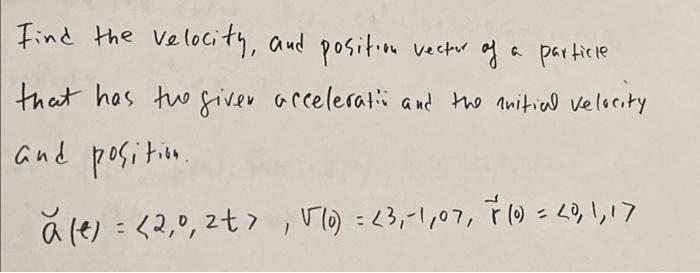 Find the velocity, and position vector of a particle
that has two given acceleratii and two initial velocity
and position.
ă(t) = <2, 0, 2t> , V(0) = <3, -1, 0>, r⃗(0) = <0, 1, 1>